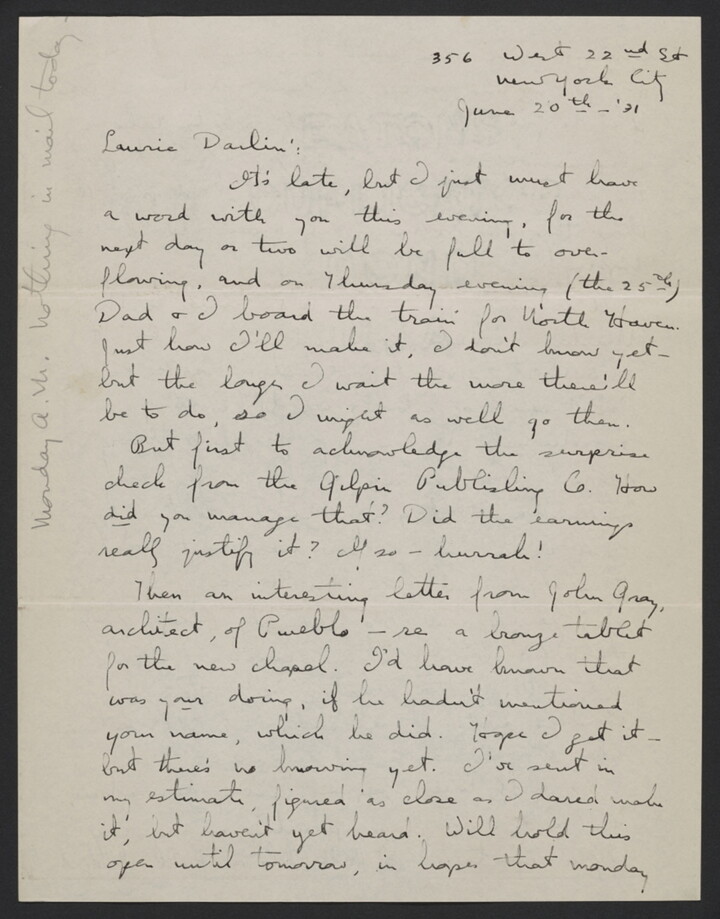 356 West 22nd St
New York City
June 20th - '31
Laurie Darlin':
It's late, but I just must have
a word with you this evening, for the
next day or two will be full to over-
flowing, and on Thursday evening (the 25th)
Dad & I board the train for North Haven.
Just how I'll make it, I don't know yet -
but the longer I wait the more there'll
be to do, so I might as well go then.
But first to acknowledge the surprise
check from the Gilpin Publishing Co. How
did you manage that? Did the earnings
really justify it? If so - hurrah!
Then an interesting letter from John Gray,
architect, of Pueblo - re a bronze tablet
for the new chapel. I'd have known that
was your doing, if he hadn't mentioned
your name, which he did. Hope I get it -
but there's no knowing yet. I've sent in
my estimate, figured as close as I dared make
it, but haven't yet heard. Will hold this
open until tomorrow, in hopes that monday
Monday A.M. Nothing in mail today -